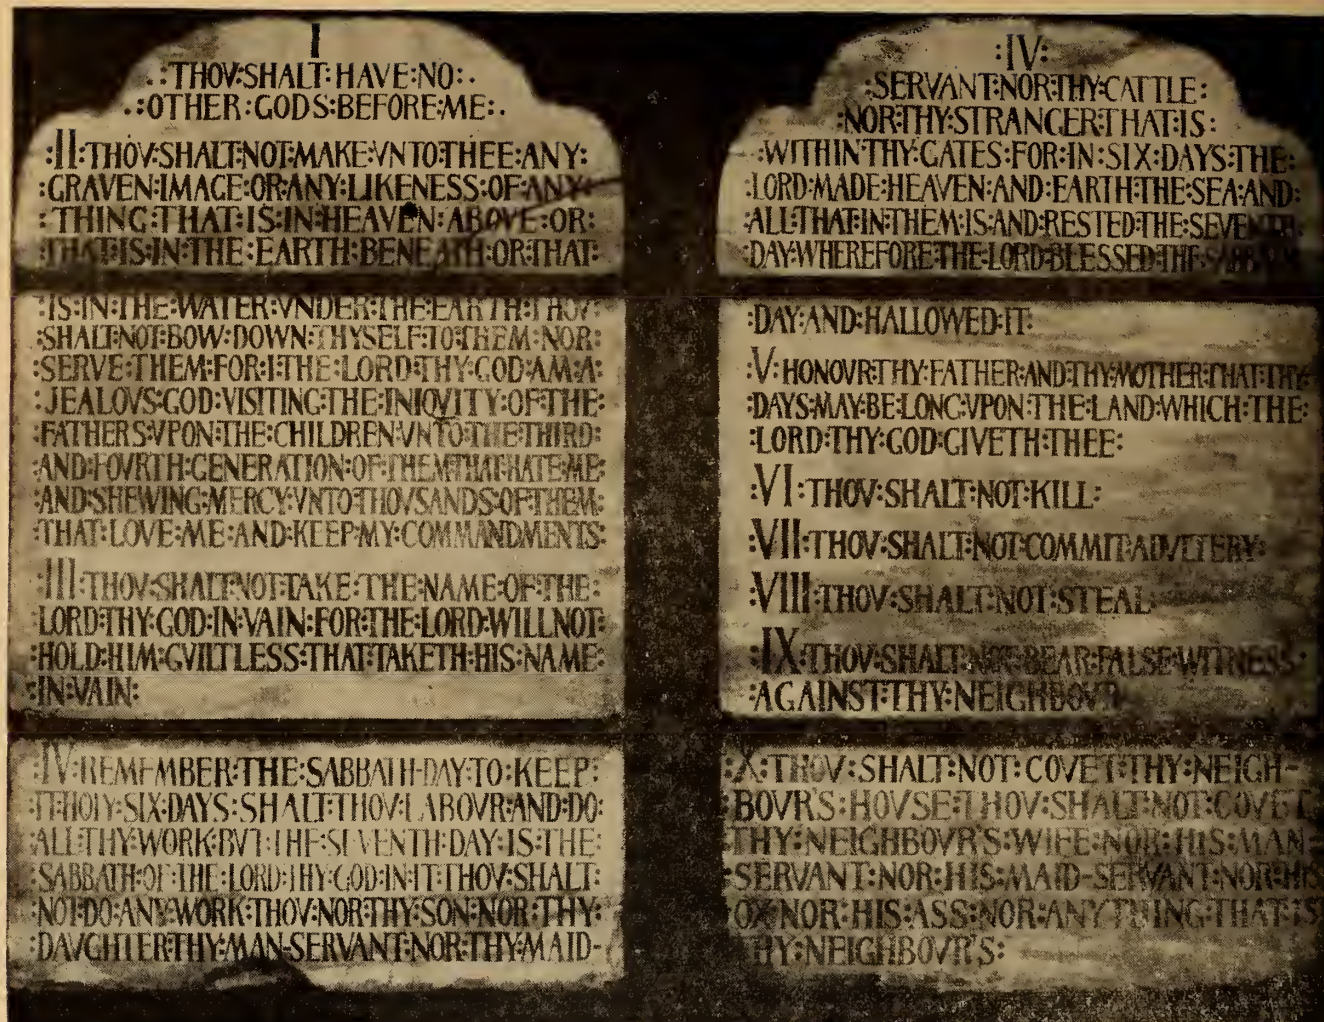 I
.:THOV:SHALT:HAVE:NO:.
.:OTHER:GODS:BEFORE:ME:.
:II:THOV:SHALT:NOT:MAKE:VNTO:THEE:ANY:
:GRAVEN:IMAGE:OR:ANY:LIKENESS:OF:ANY:
:THING:THAT:IS:IN:HEAVEN:ABOVE:OR:
:THAT:IS:IN:THE:EARTH:BENEATH:OR:THAT:
:IS:IN:THE:WATER:VNDER:THE:EARTH:THOV:
:SHALT:NOT:BOW:DOWN:THYSELF:TO:THEM:NOR:
:SERVE:THEM:FOR:I:THE:LORD:THY:GOD:AM:A:
:JEALOVS:GOD:VISITING:THE:INIQVITY:OF:THE:
:FATHERS:VPON:THE:CHILDREN:VNTO:THE:THIRD:
:AND:FOVRTH:GENERATION:OF:THEM:THAT:HATE:ME:
:AND:SHEWING:MERCY:VNTO:THOVSANDS:OF:THEM:
:THAT:LOVE:ME:AND:KEEP:MY:COMMANDMENTS:
:III:THOV:SHALT:NOT:TAKE:THE:NAME:OF:THE:
LORD:THY:GOD:IN:VAIN:FOR:THE:LORD:WILL:NOT:
:HOLD:HIM:GVILTLESS:THAT:TAKETH:HIS:NAME:
:IN:VAIN:
:IV:REMEMBER:THE:SABBATH-DAY:TO:KEEP:
:IT:HOLY:SIX:DAYS:SHALT:THOV:LABOVR:AND:DO:
ALL:THY:WORK:BVT:THE:SEVENTH:DAY:IS:THE:
:SABBATH:OF:THE:LORD:THY:GOD:IN:IT:THOV:SHALT:
:NOT:DO:ANY:WORK:THOV:NOR:THY:SON:NOR:THY:
:DAVGHTER:THY:MAN-SERVANT:NOR:THY:MAID-
:IV:
:SERVANT:NOR:THY:CATTLE:
:NOR:THY:STRANGER:THAT:IS:
:WITHIN:THY:GATES:FOR:IN:SIX:DAYS:THE:
:LORD:MADE:HEAVEN:AND:EARTH:THE:SEA:AND:
:ALL:THAT:IN:THEM:IS:AND:RESTED:THE:SEVENTH:
:DAY:WHEREFORE:THE:LORD:BLESSED:THE:SABBATH
:DAY:AND:HALLOWED:IT:
:V:HONOVR:THY:FATHER:AND:THY:MOTHER:THAT:THY
:DAYS:MAY:BE:LONG:VPON:THE:LAND:WHICH:THE:
:LORD:THY:GOD:GIVETH:THEE:
:VI:THOV:SHALT:NOT:KILL:
:VII:THOV:SHALT:NOT:COMMIT:ADVLTERY:
:VIII:THOV:SHALT:NOT:STEAL:
:IX:THOV:SHALT:NOT:BEAR:FALSE:WITNESS:
:AGAINST:THY:NEIGHBOVR
:X:THOV:SHALT:NOT:COVET:THY:NEIGH-
BOVR'S:HOVSE:THOV:SHALT:NOT:COVET
THY:NEIGHBOVR'S:WIFE:NOR:HIS:MAN-
SERVANT:NOR:HIS:MAID-SERVANT:NOR:HIS
OX:NOR:HIS:ASS:NOR:ANYTHING:THAT:IS
THY:NEIGHBOVR'S: